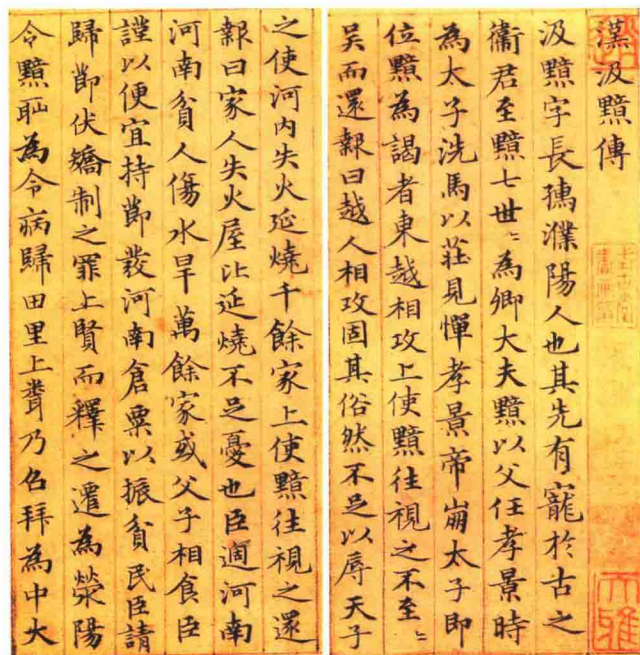 漢汲黯傳
汲黯字長孺濮陽人也其先有寵於古之
衛君至黯七世〻為卿大夫黯以父任孝景時
為太子洗馬以莊見憚孝景帝崩太子即
位黯為謁者東越相攻上使黯往視之不至〻
吴而還報曰越人相攻固其俗然不足以辱天子
之使河内失火延燒千餘家上使黯往視之還
報曰家人失火屋比延燒不足憂也臣適河南
河南貧人傷水旱萬餘家或父子相食臣
謹以便宜持節發河南倉粟以振貧民臣請
歸節伏矯制之罪上賢而釋之遷為滎陽
令黯耻為令病歸田里上聞乃召拜為中大